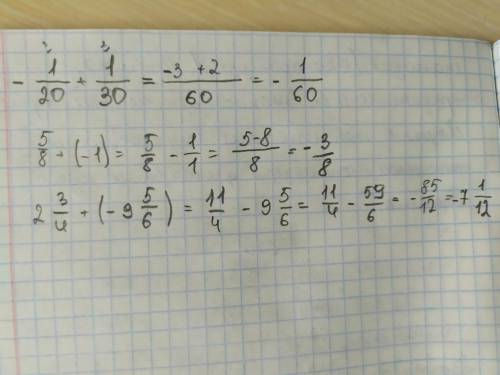 - 1/20 + 1/30 = -3 +2/60 = - 1/60
5/8 + (-1) = 5/8 - 1/1 = 5-8/8 = - 3/8
2 3/4 + (- 9 5/6) = 11/4 - 9 5/6 = 11/4 - 59/6 = - 85/12 = -7 1/12